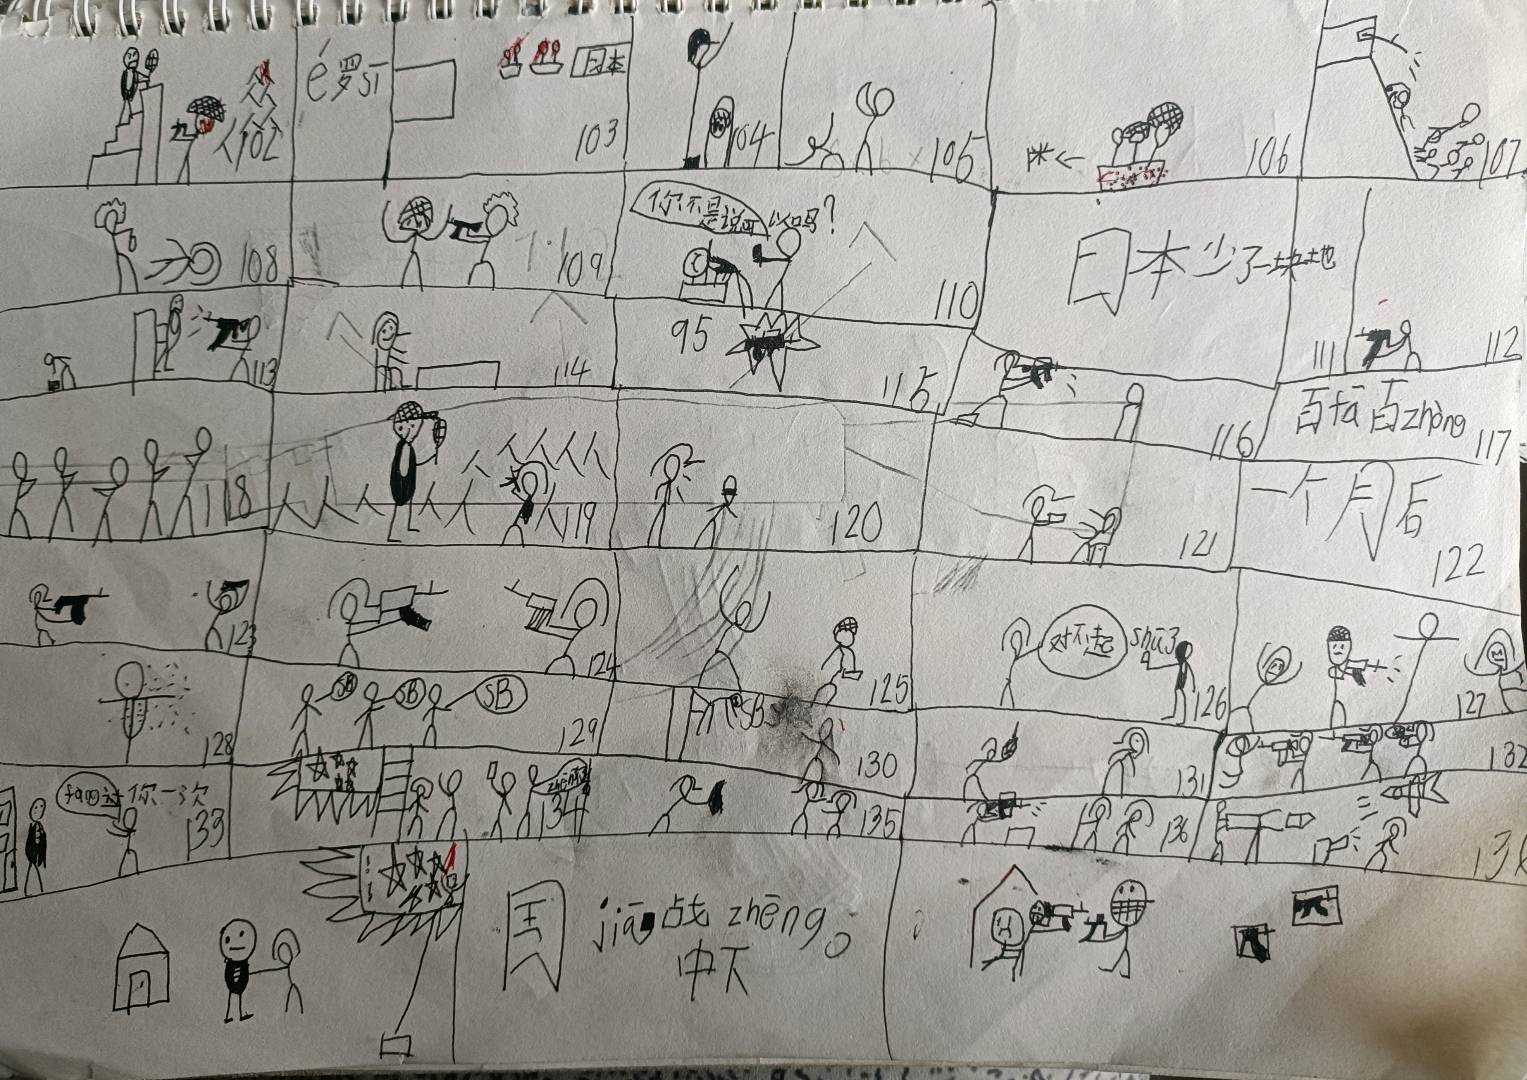 众
人102
é罗sī
日本
103
104
105
106
107
108
109
你不是说可以吗?
110
日本少了一块地
111
112
113
114
95
115
116
百fā百zhòng
117
118
人人人人人
人人人人人人
119
120
121
一个月后
122
123
124
125
对不起
126
127
128
SB
SB
SB
129
SB
130
131
132
fā四对你一次
133
134
135
136
国jiā战zhēng。
中下